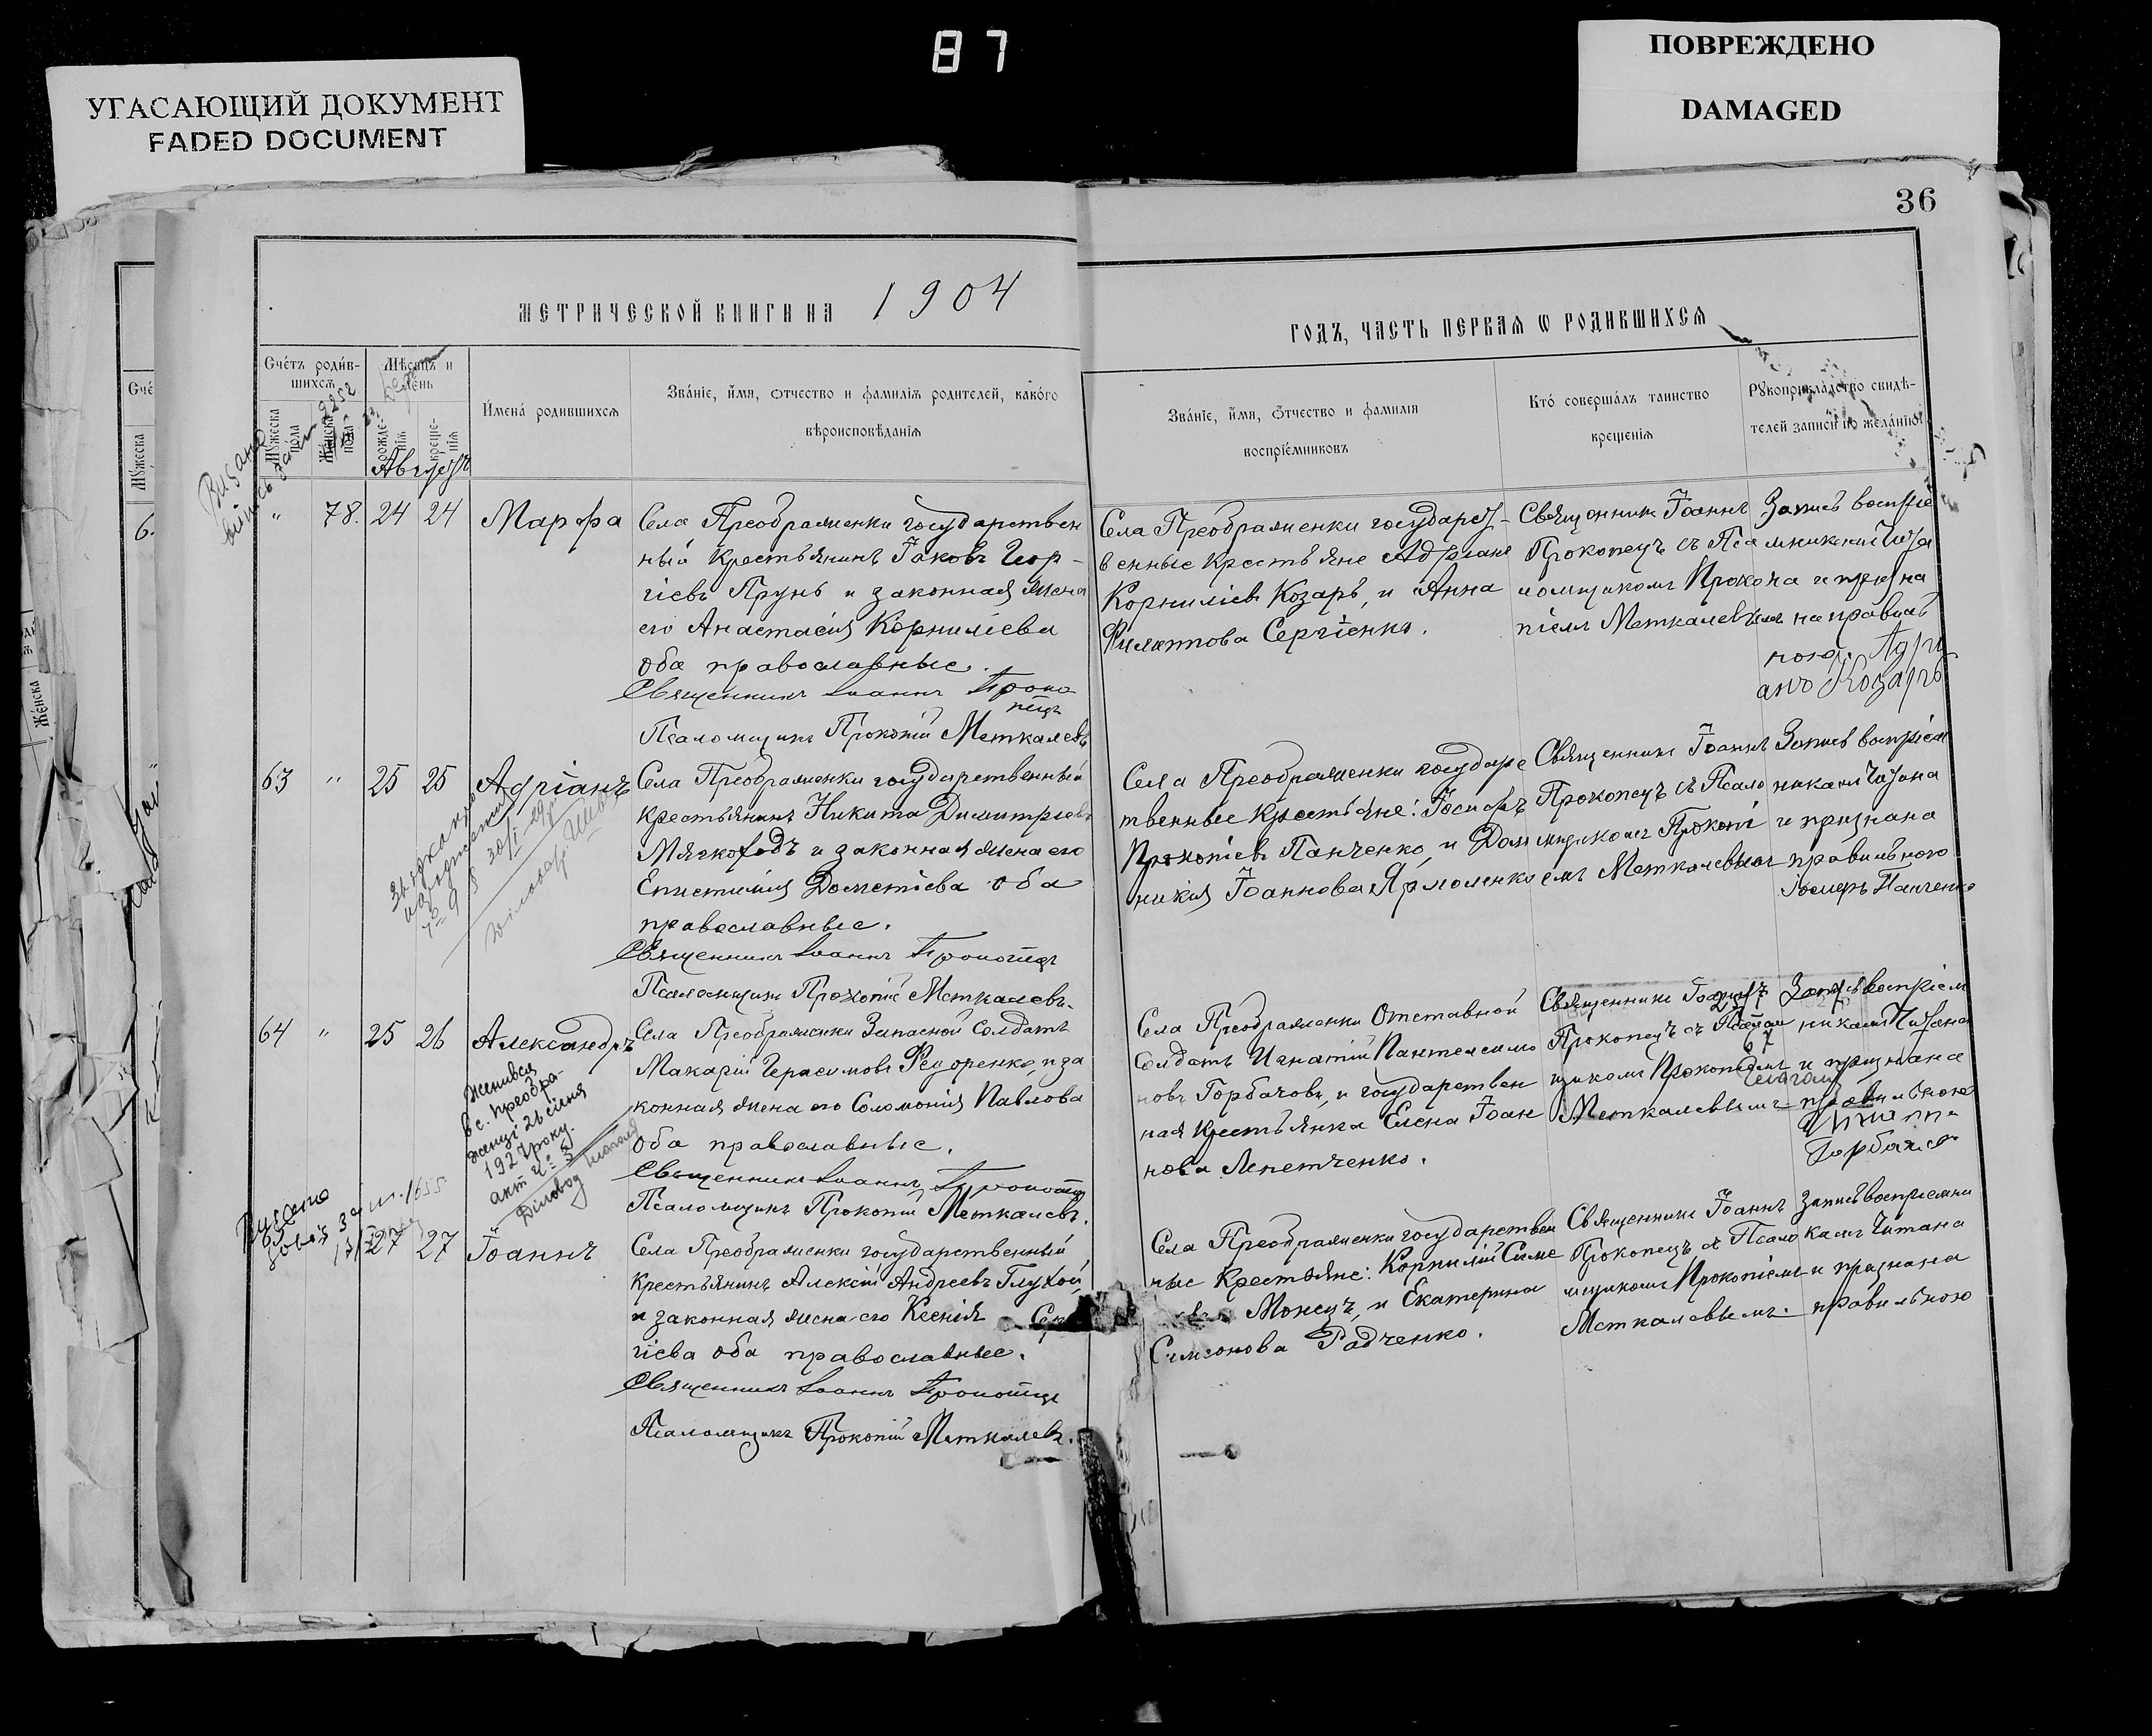 87
УГАСАЮЩИЙ ДОКУМЕНТ
FADED DOCUMENT
ПОВРЕЖДЕНО
DAMAGED
36
МЕТРИЧЕСКОЙ КНИГИ НА 1904
ГОДЪ, ЧАСТЬ ПЕРВАЯ Ѡ РОДИВШИХСЯ
Счетъ родив-
шихся
Мѣсяцъ и
день
Мужеска
пола
Женска
пола
рожде-
нія
креще-
нія
Имена родившихся
Званіе, имя, отчество и фамилія родителей, какого
вѣроисповѣданія
Званіе, имя, отчество и фамилія
воспріемниковъ
Кто совершалъ таинство
крещенія
Рукоприкладство свидѣ-
телей записи по желанію
Августъ
" 78. 24 24 Марфа
Села Преображенки государствен
ный крестьянинъ Іаковъ Геор-
гіевъ Прунь и законная жена
его Анастасія Корниліева
оба православные.
Священникъ Іоаннъ Проко
пецъ
Псаломщикъ Прокопій Меткалевъ
Села Преображенки государст-
венные крестьяне Адріанъ
Корниліевъ Козарь, и Анна
Филиппова Сергіенко.
Священникъ Іоаннъ
Прокопецъ съ Пса
ломщикомъ Проко
піемъ Меткалевымъ
Запись воспріе
мниками чита
на и призна
на правиль
ною. Адрі
анъ Козарь
63 " 25 25 Адріанъ
Села Преображенки государственный
крестьянинъ Никита Димитріевъ
Мягкоходъ и законная жена его
Епистимія Дометіева оба
православные.
Священникъ Іоаннъ Прокопецъ
Псаломщикъ Прокопій Меткалевъ.
Села Преображенки государс
твенные крестьяне: Іосифъ
Прокопіевъ Панченко, и Дом
никія Іоаннова Ярмоленко
Священникъ Іоаннъ
Прокопецъ съ Псало
мщикомъ Прокопі
емъ Меткалевымъ
Запись воспріем
никами читана
и признана
правильною
Іосифъ Панченко
64 " 25 26 Александръ
Женився
в с. Преобра-
женці 26 січня
1924 року.
акт ч. 5
Діловод
Села Преображенки Запасной Солдатъ
Макарій Герасимовъ Федоренко, и за
конная жена его Соломонія Павлова
оба православные.
Священникъ Іоаннъ Прокопецъ
Псаломщикъ Прокопій Меткалевъ.
Села Преображенки Отставной
Солдатъ Игнатій Пантелеимо
новъ Горбачовъ, и государствен
ная крестьянка Елена Іоан
нова Лепетченко.
Священникъ Іоаннъ
Прокопецъ съ Псалом
щикомъ Прокопіемъ
Меткалевымъ
Запись воспріем
никами читана
и признана
правильною
Горбачов
65 27 27 Іоаннъ
Села Преображенки государственный
крестьянинъ Алексій Андреевъ Глухой,
и законная жена его Ксенія Сер
гіева оба православные.
Священникъ Іоаннъ Прокопецъ
Псаломщикъ Прокопій Меткалевъ.
Села Преображенки государствен
ные крестьяне: Корнилій Симе
Монецъ, и Екатерина
Симеонова Радченко.
Священникъ Іоаннъ
Прокопецъ съ Псало
мщикомъ Прокопіемъ
Меткалевымъ.
Запись воспріемни
камъ читана
и признана
правильною